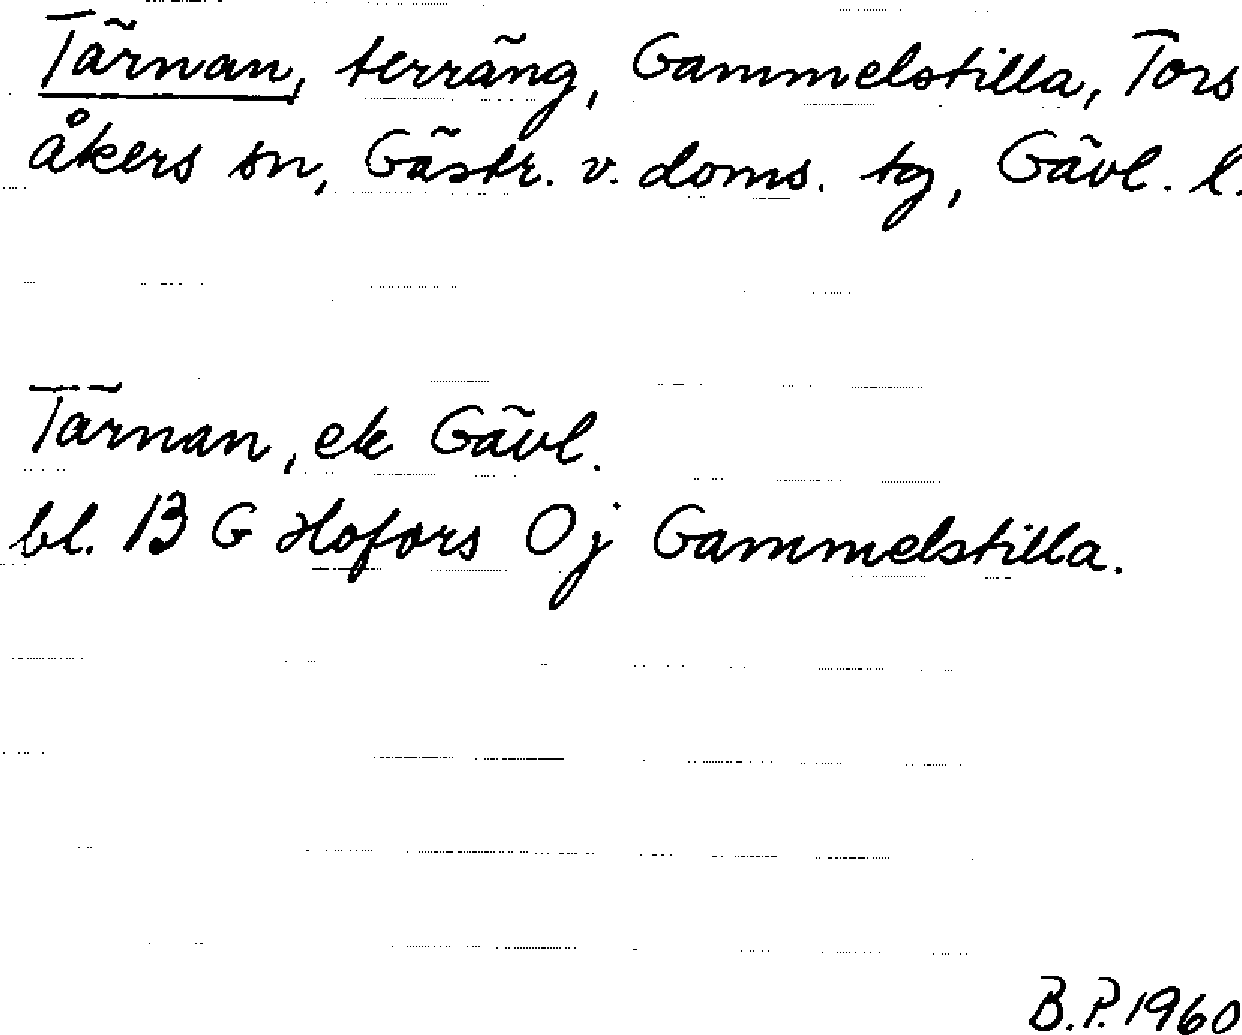 Tärnan, terräng, Gammelstilla, Tors
åkers sn, Gästr. v. doms. tg, Gävl. l.
Tärnan, ek Gävl.
bl. 13 G Hofors Oj Gammelstilla.
B.P. 1960